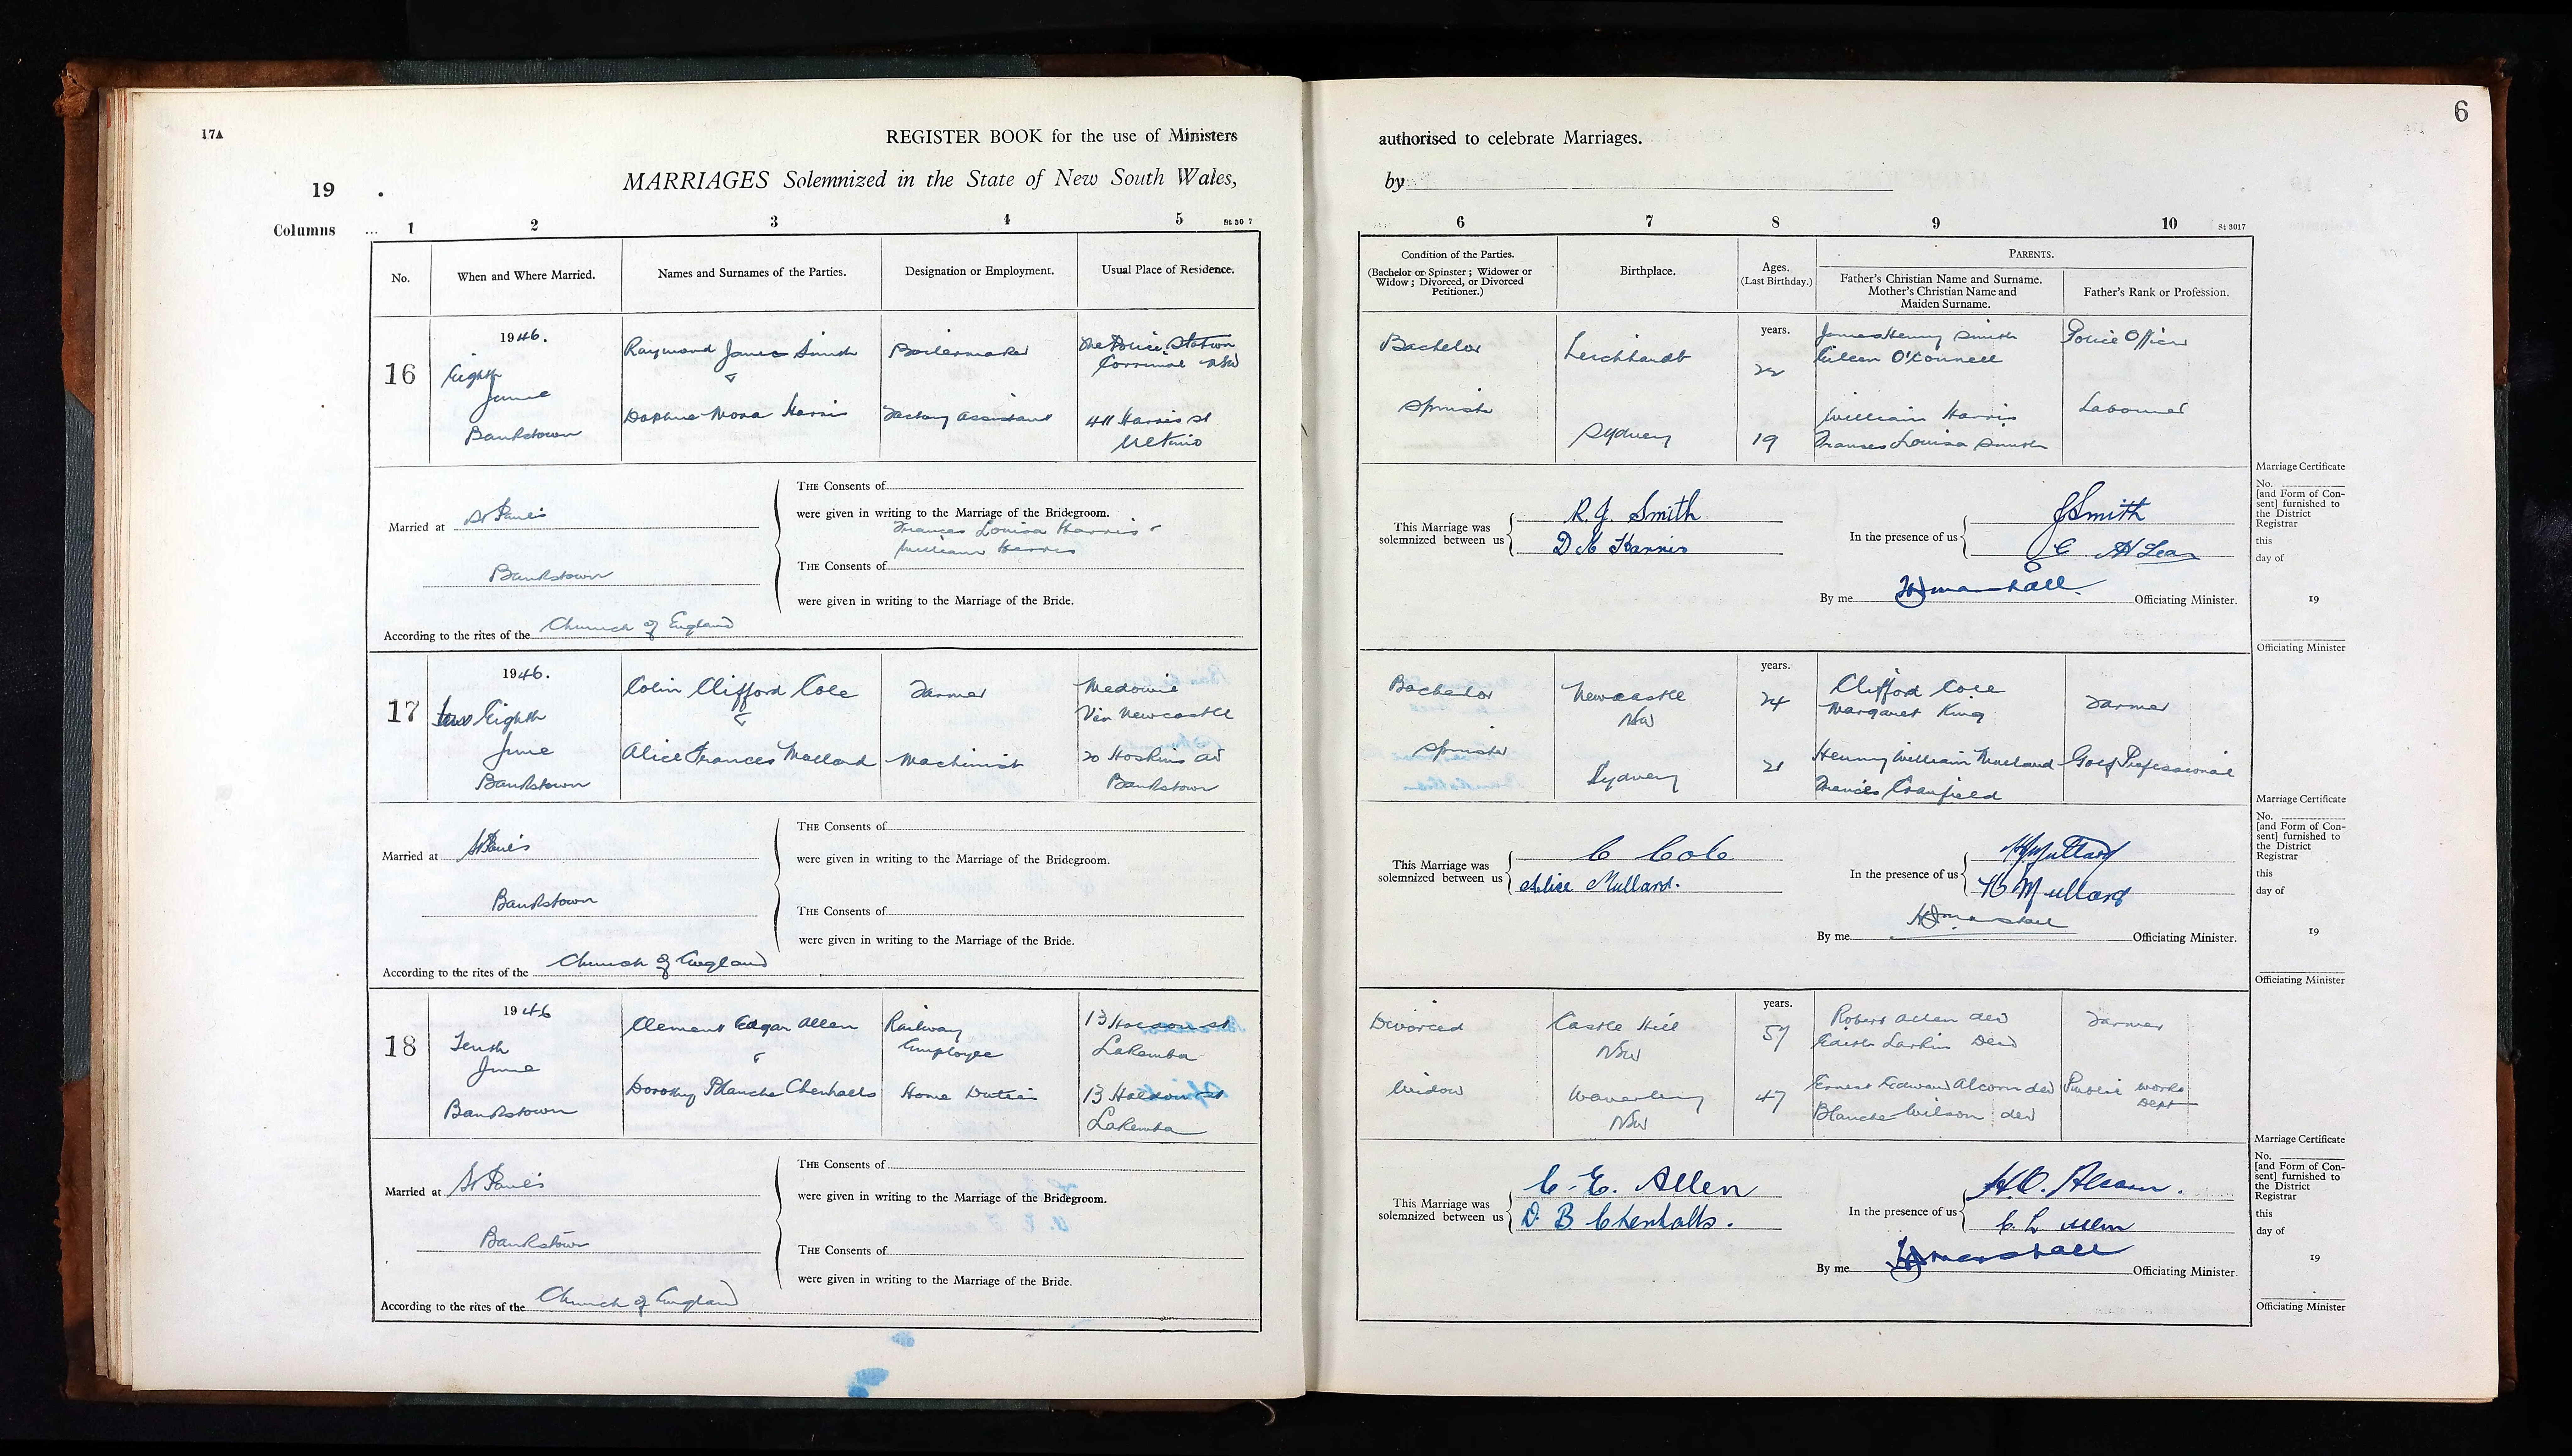 17A
REGISTER BOOK for the use of Ministers
19
MARRIAGES Solemnized in the State of New South Wales,
Columns ... 1 2 3 4 5 St 30 7
No. When and Where Married. Names and Surnames of the Parties. Designation or Employment. Usual Place of Residence.
16
1946.
Eighth
June
Bankstown
Raymond James Smith
&
Daphne Mona Harris
Boilermaker
Factory Assistant
The Police Station
Corrimal NSW
411 Harris St
Ultimo
Married at St Paul's
Bankstown
According to the rites of the Church of England
THE Consents of
were given in writing to the Marriage of the Bridegroom.
Frances Louisa Harris &
William Harris
THE Consents of
were given in writing to the Marriage of the Bride.
17
1946.
Eighth
June
Bankstown
Colin Clifford Cole
&
Alice Frances Mullard
Farmer
Machinist
Medowie
Via Newcastle
20 Hoskins Av
Bankstown
Married at St Paul's
Bankstown
According to the rites of the Church of England
THE Consents of
were given in writing to the Marriage of the Bridegroom.
THE Consents of
were given in writing to the Marriage of the Bride.
18
1946
Tenth
June
Bankstown
Clement Edgar Allen
&
Dorothy Blanche Chenhalls
Railway
Employee
Home Duties
13 St
Lakemba
13 St
Lakemba
Married at St Paul's
Bankstown
According to the rites of the Church of England
THE Consents of
were given in writing to the Marriage of the Bridegroom.
THE Consents of
were given in writing to the Marriage of the Bride.
6
authorised to celebrate Marriages.
by
6 7 8 9 10 St 3017
Condition of the Parties.
(Bachelor or Spinster; Widower or
Widow; Divorced, or Divorced
Petitioner.)
Birthplace.
Ages.
(Last Birthday.)
PARENTS.
Father's Christian Name and Surname.
Mother's Christian Name and
Maiden Surname.
Father's Rank or Profession.
Bachelor
Spinster
Leichhardt
Sydney
years.
22
19
James Henry Smith
Eileen O'Connell
William Harris
Frances Louisa Smith
Police Officer
Labourer
This Marriage was
solemnized between us
R. J. Smith
D M Harris
In the presence of us
J Smith
By me H Marshall Officiating Minister.
Marriage Certificate
No.
[and Form of Con-
sent] furnished to
the District
Registrar
this
day of
19
Officiating Minister
Bachelor
Spinster
Newcastle
NSW
Sydney
years.
24
21
Clifford Cole
Margaret King
Henry William Mullard
Frances Cranfield
Farmer
Golf Professional
This Marriage was
solemnized between us
C Cole
Alice Mullard.
In the presence of us
Mullard
Mullard
By me Marshall Officiating Minister.
Marriage Certificate
No.
[and Form of Con-
sent] furnished to
the District
Registrar
this
day of
19
Officiating Minister
Divorced
Widow
Castle Hill
NSW
Waverley
NSW
years.
57
47
Robert Allen dcd
Edith Larkin Decd
Ernest Edward Alcorn dcd
Blanche Wilson dcd
Farmer
Public Works
Dept
This Marriage was
solemnized between us
C. E. Allen
D. B. Chenhalls.
In the presence of us
Alcorn.
C. L Allen
By me Marshall Officiating Minister.
Marriage Certificate
No.
[and Form of Con-
sent] furnished to
the District
Registrar
this
day of
19
Officiating Minister